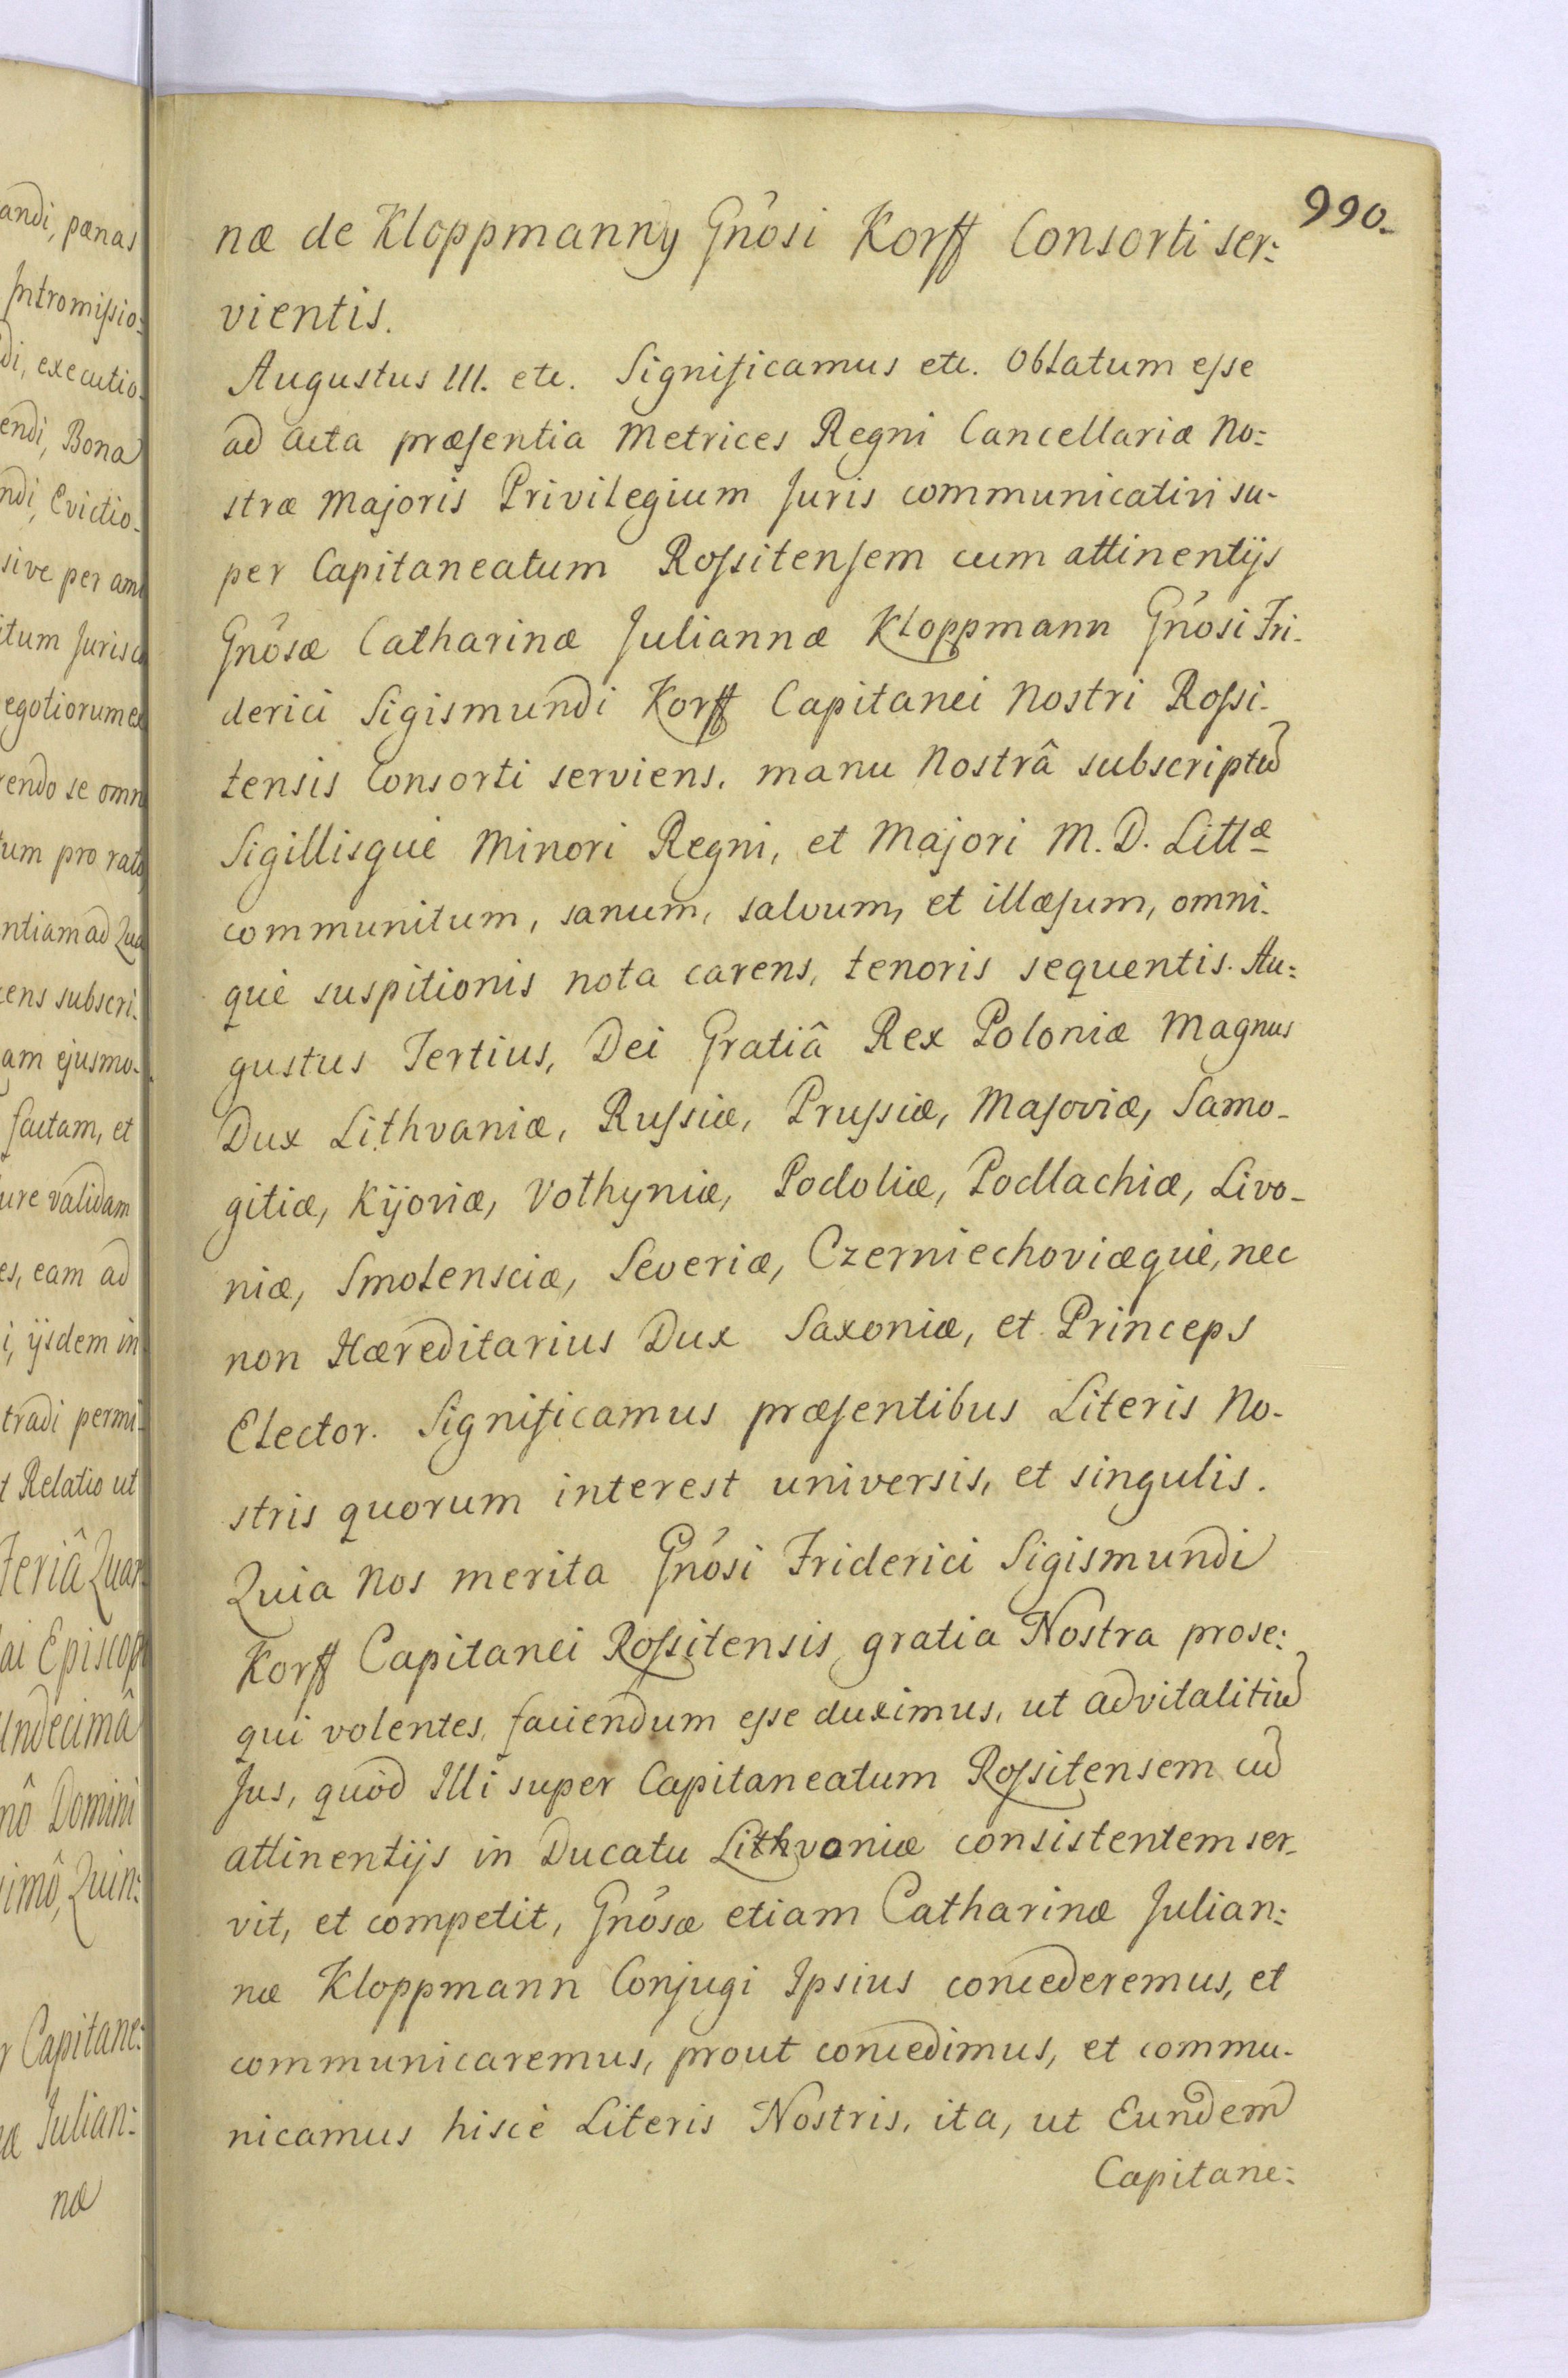 990.
næ de Kloppmanny Gnôsi Korff Consorti ser:
vientis.
Augustus III. etc. Significamus etc. Oblatum esse
ad acta præsentia Metrices Regni Cancellariæ No:
stræ Majoris Privilegium Juris communicativi su-
per Capitaneatum Rossitensem cum attinentijs
Gnôsæ Catharinæ Juliannæ Kloppmann Gnôsi Fri-
derici Sigismundi Korff Capitanei Nostri Rossi-
tensis Consorti serviens, manu Nostrâ subscriptũ
Sigillisque Minori Regni, et Majori M. D. Littæ
communitum, sanum, salvum, et illæsum, omni-
què suspitionis nota carens, tenoris sequentis. Au:
gustus Tertius, Dei Gratiâ Rex Poloniæ Magnus
Dux Lithvaniæ, Russiæ, Prussiæ, Masoviæ, Samo-
gitiæ, Kijoviæ, Volhyniæ, Podoliæ, Podlachiæ, Livo-
niæ, Smolensciæ, Severiæ, Czerniechoviæquè, nec
non Hæreditarius Dux Saxoniæ, et Princeps
Elector. Significamus præsentibus Literis No-
stris quorum interest universis, et singulis.
Quia Nos merita Gnôsi Friderici Sigismundi
Korff Capitanei Rossitensis gratia Nostra prose:
qui volentes, faciendum esse duximus, ut advitalitiũ
Jus, quòd Illi super Capitaneatum Rossitensem cũ
attinentijs in Ducatu Lithvoniæ consistentem ser-
vit, et competit, Gnôsæ etiam Catharinæ Julian:
næ Kloppmann Conjugi Ipsius concederemus, et
communicaremus, prout concedimus, et commu-
nicamus hiscè Literis Nostris, ita, ut Eundem
Capitane:
andi, pœnas
Intromissio:
di, executio-
endi, Bona
ndi, Evictio-
sive per am
itum Juris
egotiorum
rendo se omn
tum pro rato
ntiam ad
cens subscri-
am ejusmo-
factam, et
ure validam
es, eam ad
i, ijsdem in
tradi permi-
t Relatio ut
Feriâ Quar
ai Episcop
Undecimâ
nô Domini
imô, Quin:
r Capitane:
æ Julian:
næ